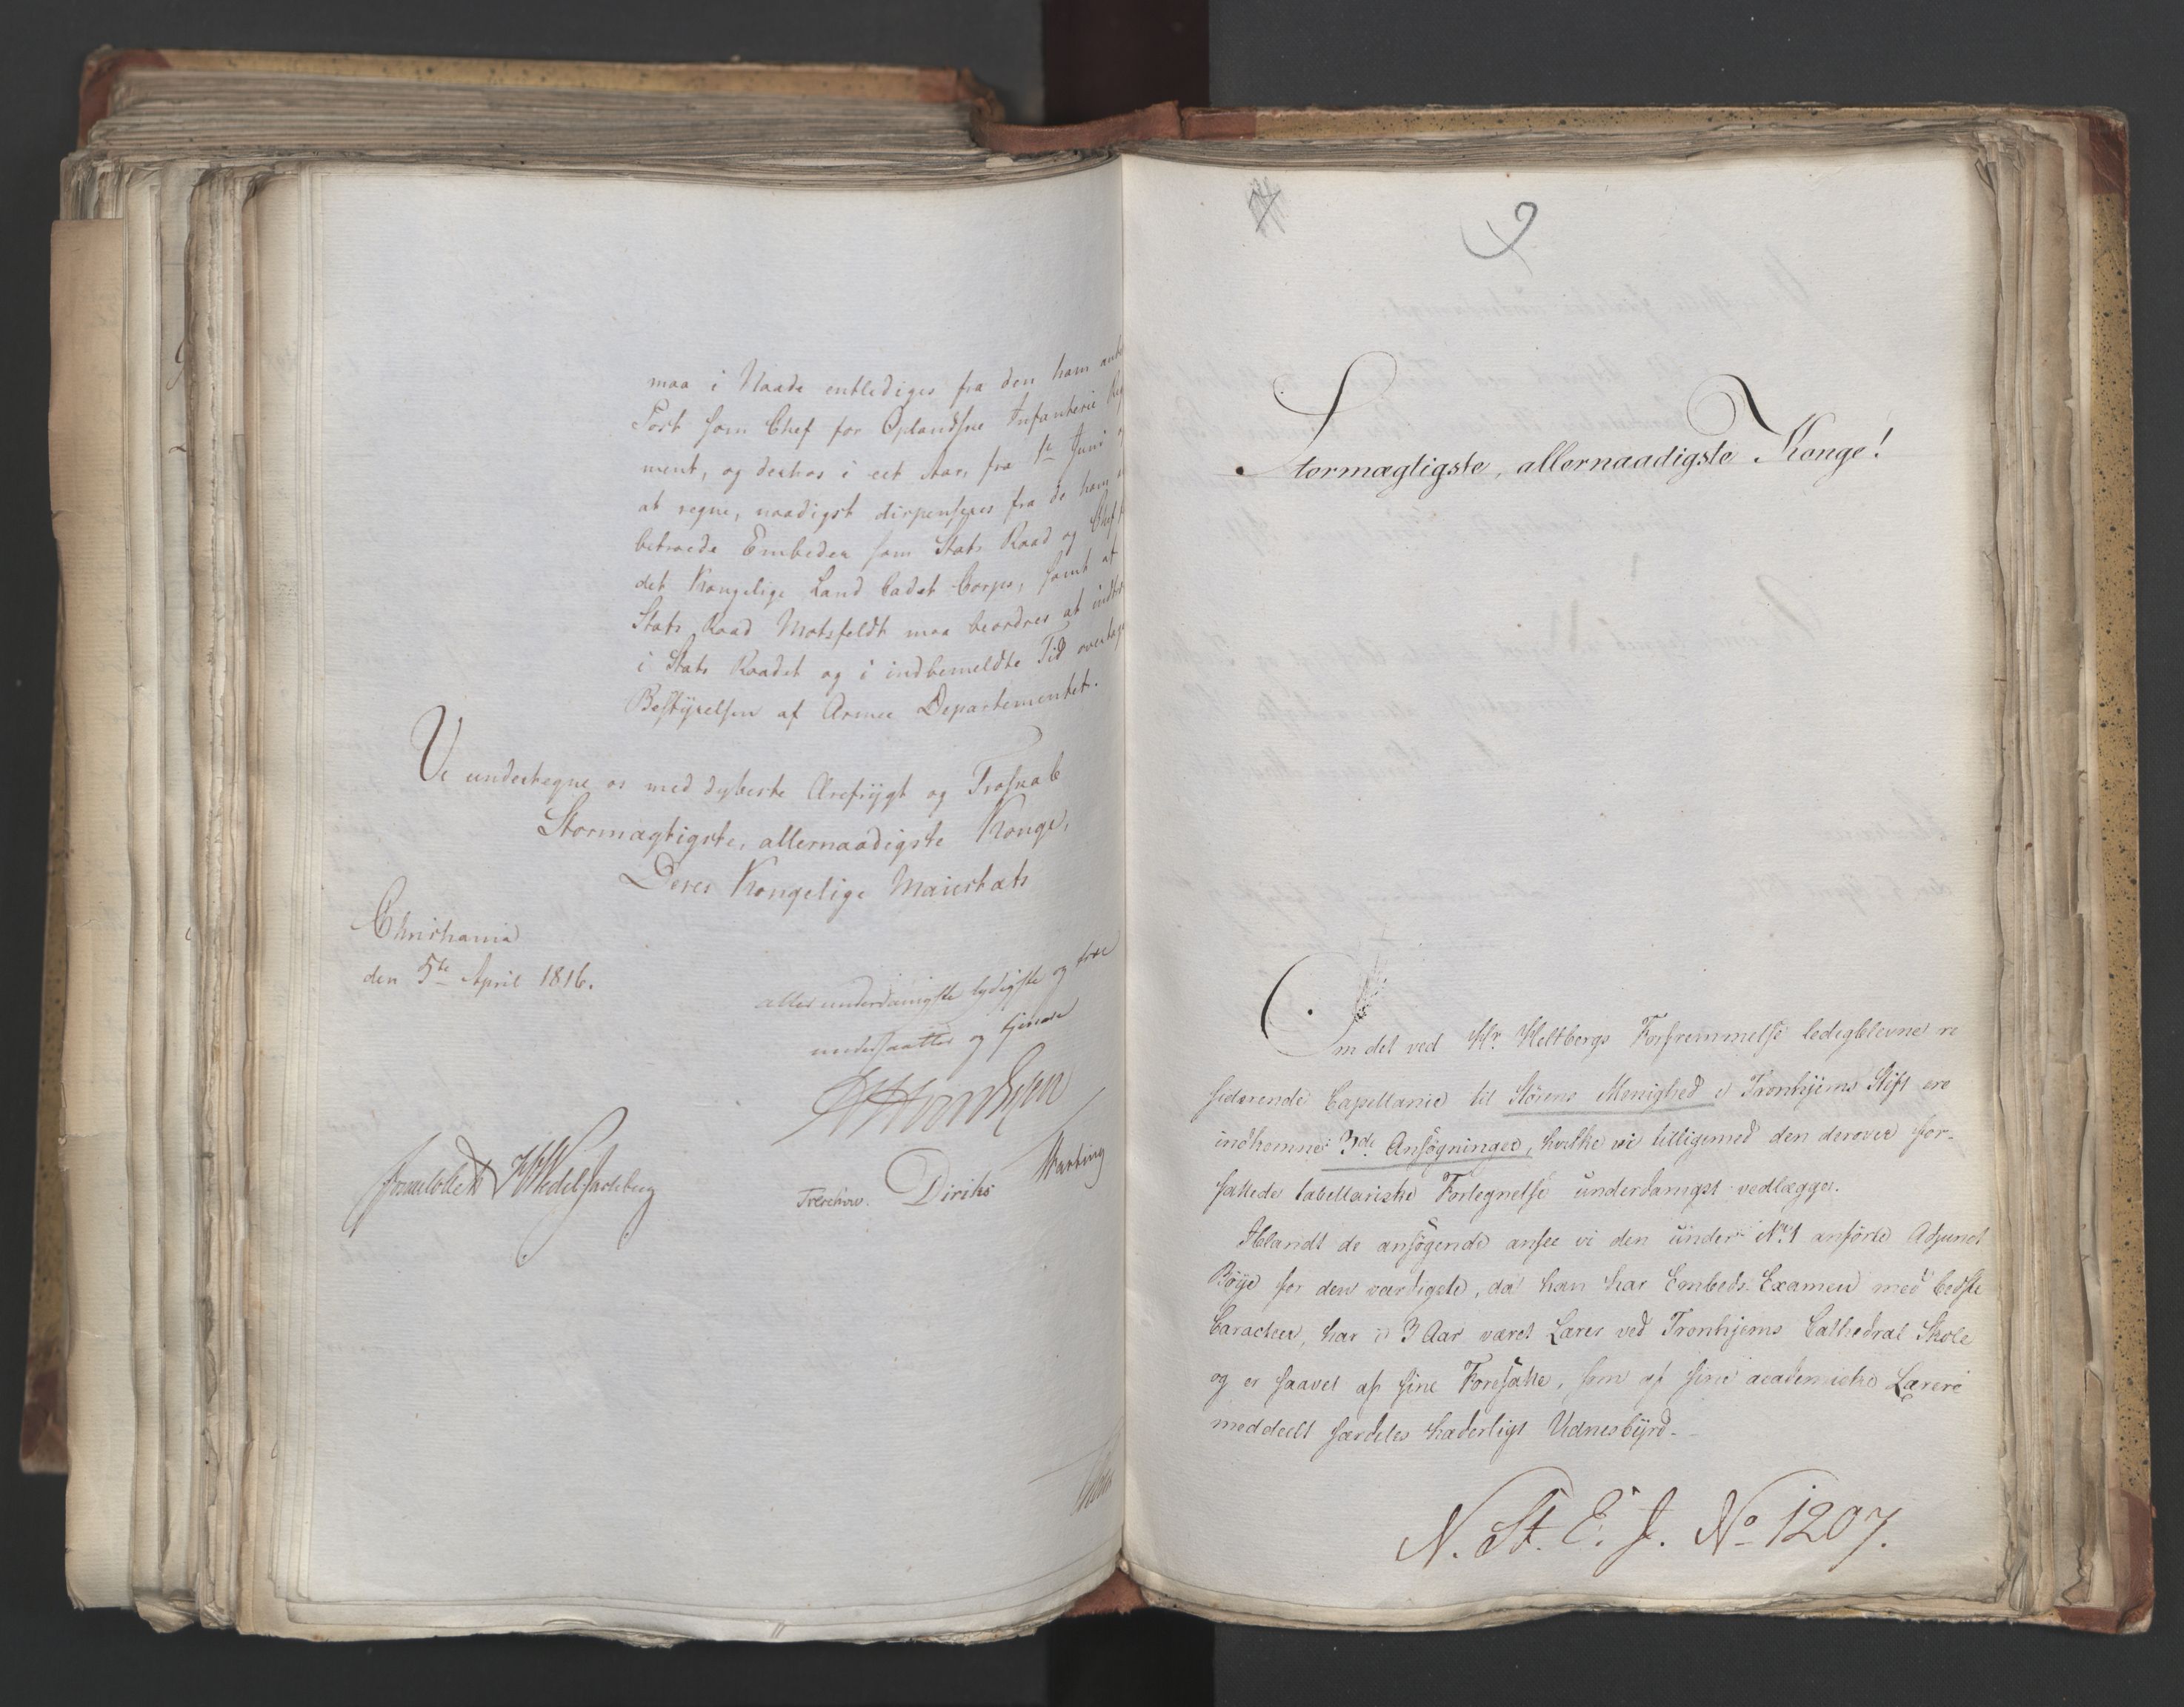 maa i Naade entlediges fra den ham
Post som Chef for Oplandske Infanterie Reg
ment, og derhos i eet Aar, fra 1te Juni
at regne, naadigst dispenseres fra de ham
betroede Embeder som Stats Raad og Chef f
det Kongelige Land Cadet Corps, samt at
Stats Raad Motzfeldt maa beordres at indtr
i Stats Raadet og i indbemeldte Tid overtage
Bestyrelsen af Armee Departementet.
Vi undertegne os med dybeste Ærefrygt og Troskab
Stormægtigste, allernaadigste Konge,
Deres Kongelige Maiestæts
Christiania
den 5te April 1816.
allerunderdanigste lydigste og troe
undersaatter og tjenere
Sommerfeldt HWedel Jarlsberg
Treschow. Diriks
Stormægtigste, allernaadigste Konge!
Om det ved Hr. Heltbergs Forfremmelse ledigblevne re
siderende Capellanie til Størens Menighed i Tronhjems Stift ere
indkomne 3de Ansøgninger, hvilke vi tilligemed den derover for-
fattede tabellariske Fortegnelse underdanigst vedlægger.
Iblandt de ansøgende ansee vi den under No. 1 anførte Adjunct
Böye for den værdigste, da han har Embeds-Examen med bedste
Caracteer, har i 3 Aar været Lærer ved Tronhjems Cathedral Skole
og er saavel af sine Foresatte, som af sine academiske Lærere
meddeelt særdeles hæderligt Vidnesbyrd.-
N. St. E. J. No 1207.